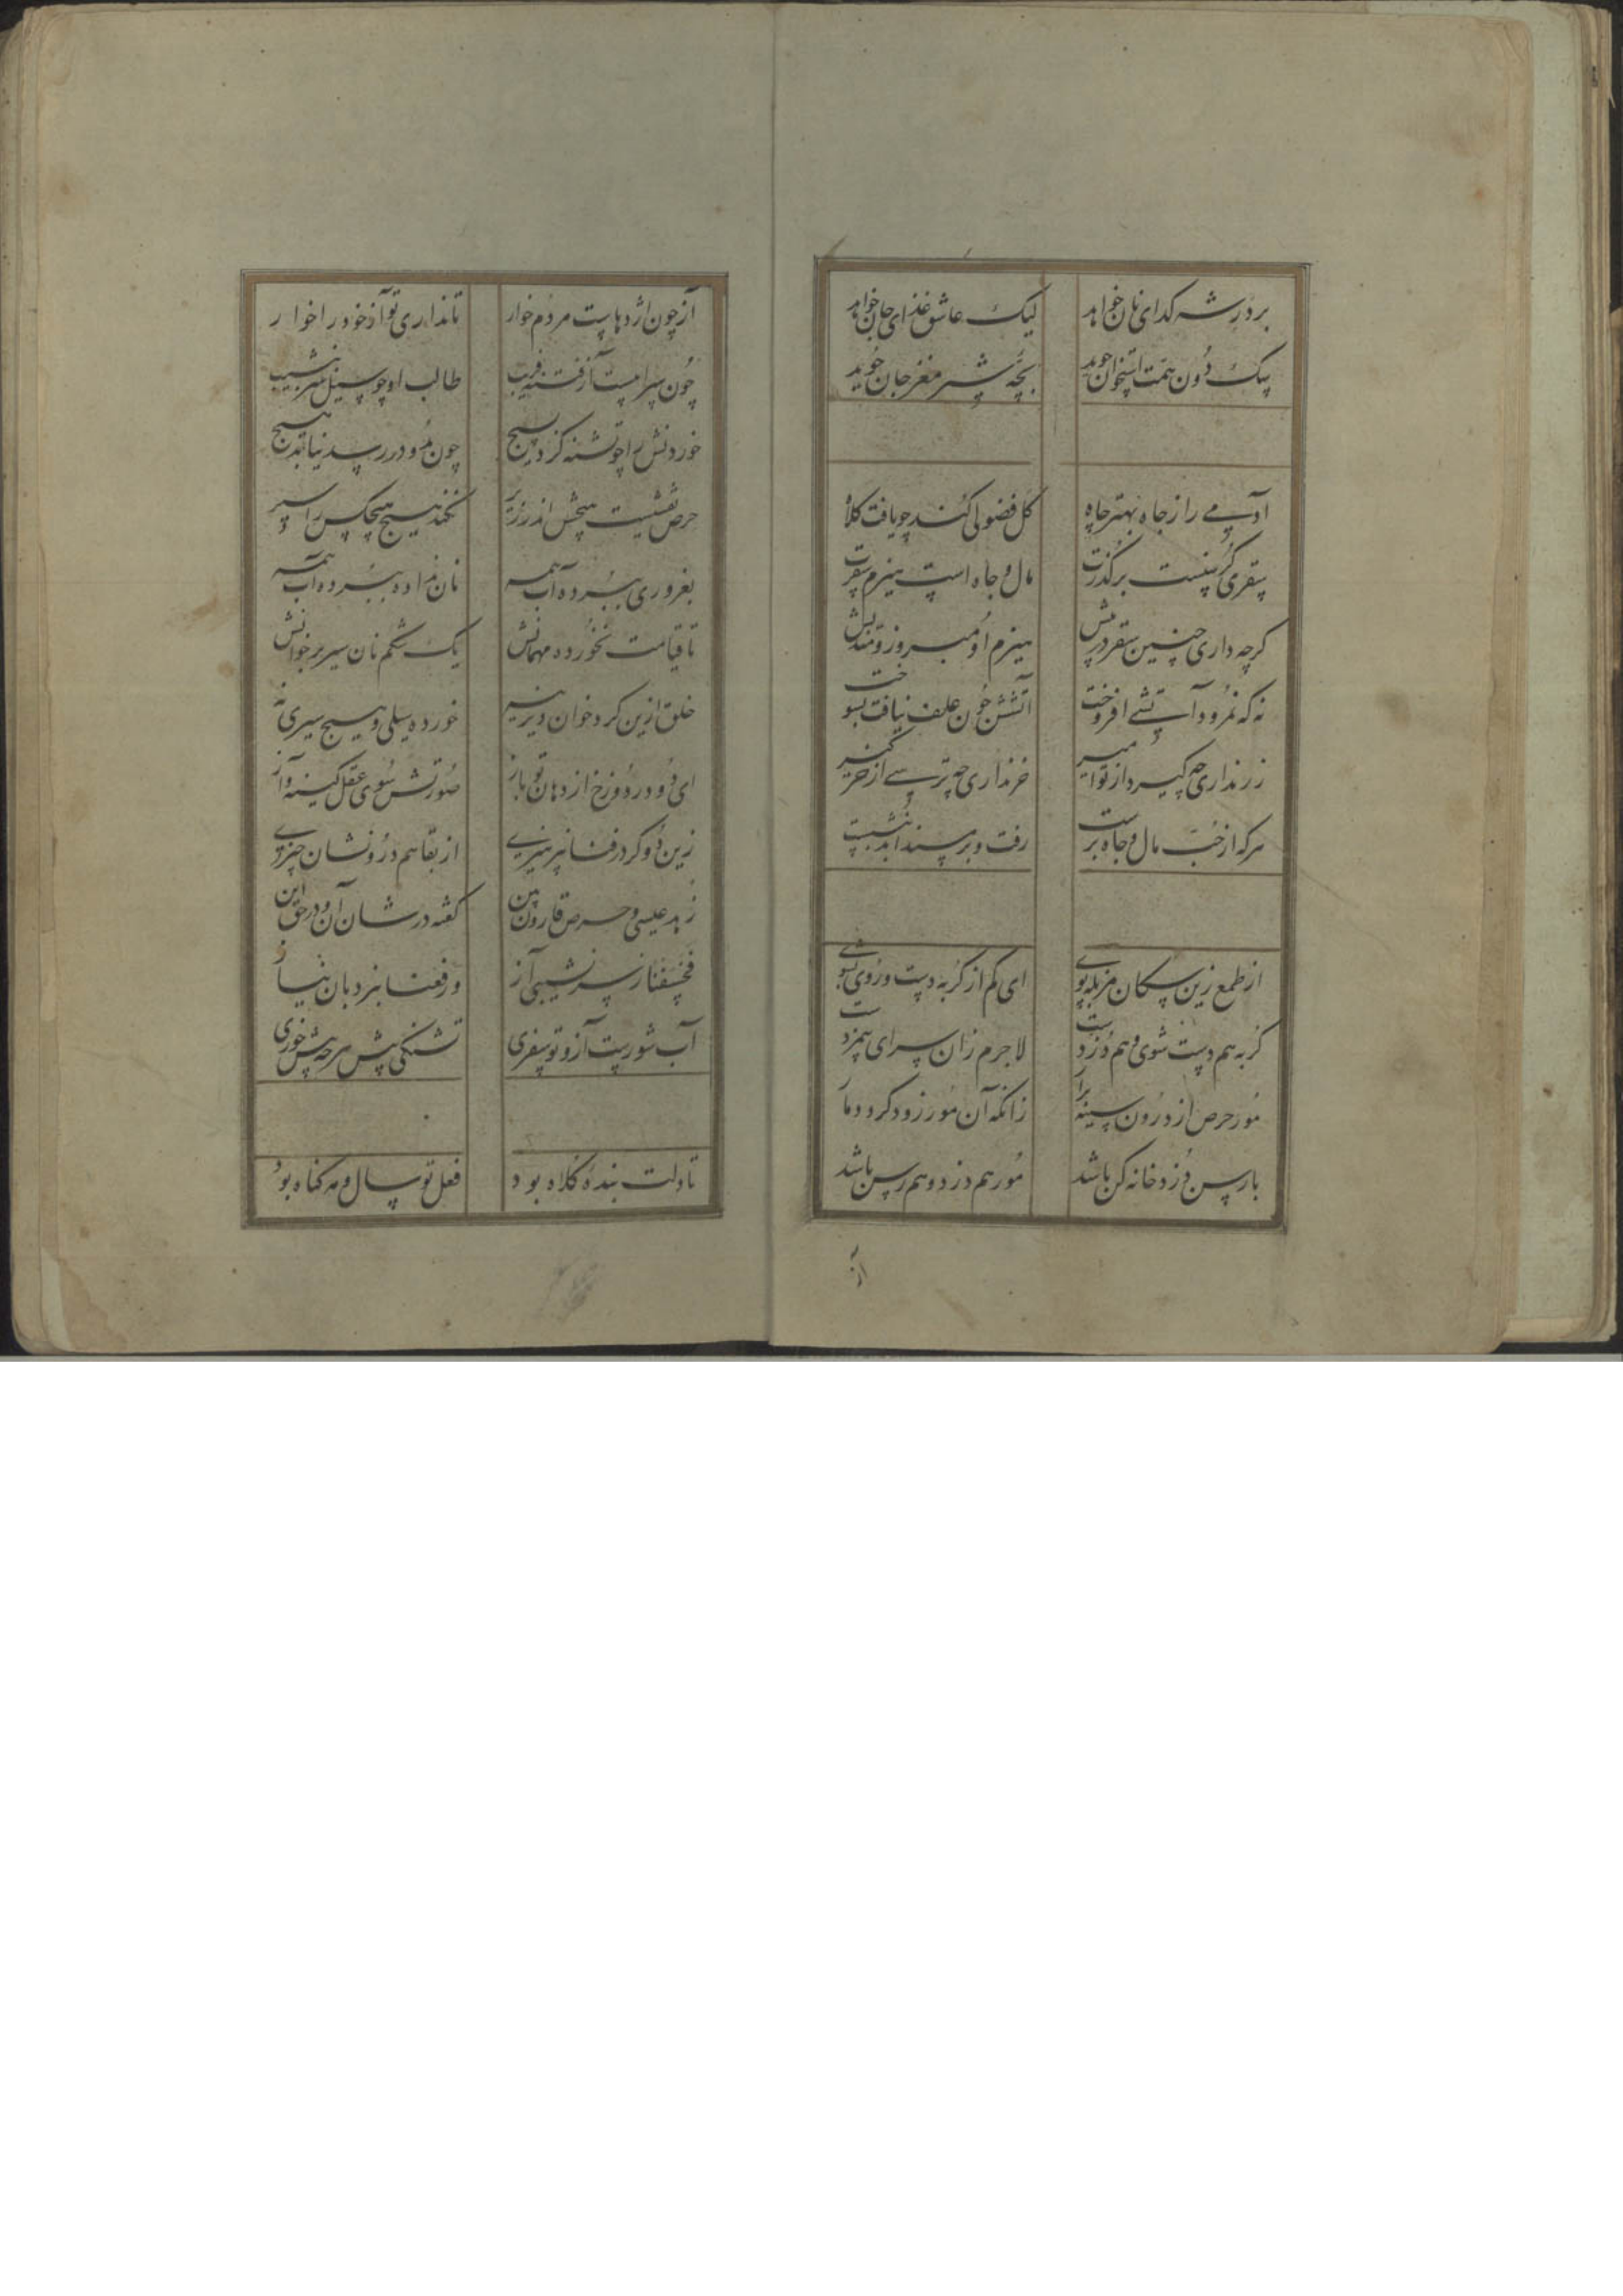 بر درش گدای نان خواهد لیک عاشق غذای جان خواهد
سگ دون همت استخوان جوید بچه شیر مغز جان جوید
آدمی را ز جاه بهتر چاه کل فضولی کند چو یافت کلاه
سقری گر نیست بر گذرت مال و جاه است هیزم سقرت
گرچه داری چنین سقر در پیش هیزم او مبر وز و مندیش
نه که نمرود آتشی افروخت آتشش چون علف نیافت بسوخت
زر نداری چه گیرد از تو امیر خر نداری چه ترسی از خرگیر
هرکه از حب مال و جاه برست رفت و بر مسند ابد نشست
از طمع زین سگان مزبله پوی ای کم از گربه دست و روی بشوی
گربه هم دست شوی و هم دزدست لاجرم زان سرای بی مزدست
مور حرص از درون سینه برآر زانکه آن مور زود گردد مار
بارسن دزد خانه کن باشد مور هم دزد و هم رسن باشد
آز چون اژدهاست مردم خوار تا نداری تو آز خود را خوار
چون سرابست آز فتنه فریب طالب او چو سیل سر بنشیب
خوردنش را چو تشنه کرد بسیج چون بدو در رسد نیابد هیچ
حرص نقشیست هیچش اندر زیر نکند هیچ هیچکس را سیر
بغروری ببرده آب همه نان نداده ببرده آب همه
تا قیامت نخورده مهمانش یک شکم نان سیر بر خوانش
خلق ازین گرد خوان دیرینه خورده سیلی و هیچ سیری نه
ای دو در دوزخ از دهان تو باز صورتش سوی عقل کینه و آز
زین دو گر در فنا بپرهیزی از بقا هم درو نشان چیزی
زهد عیسی و حرص قارون بین گفته در شان آن و در حق این
فخسفنا ز سرنشیبی آز ورفعنا بنردبان نیاز
آب شورست آز و تو سفری تشنگی بیش هرچه بیش خوری
تا دلت بنده کلاه بود فعل تو سال و مه گناه بود